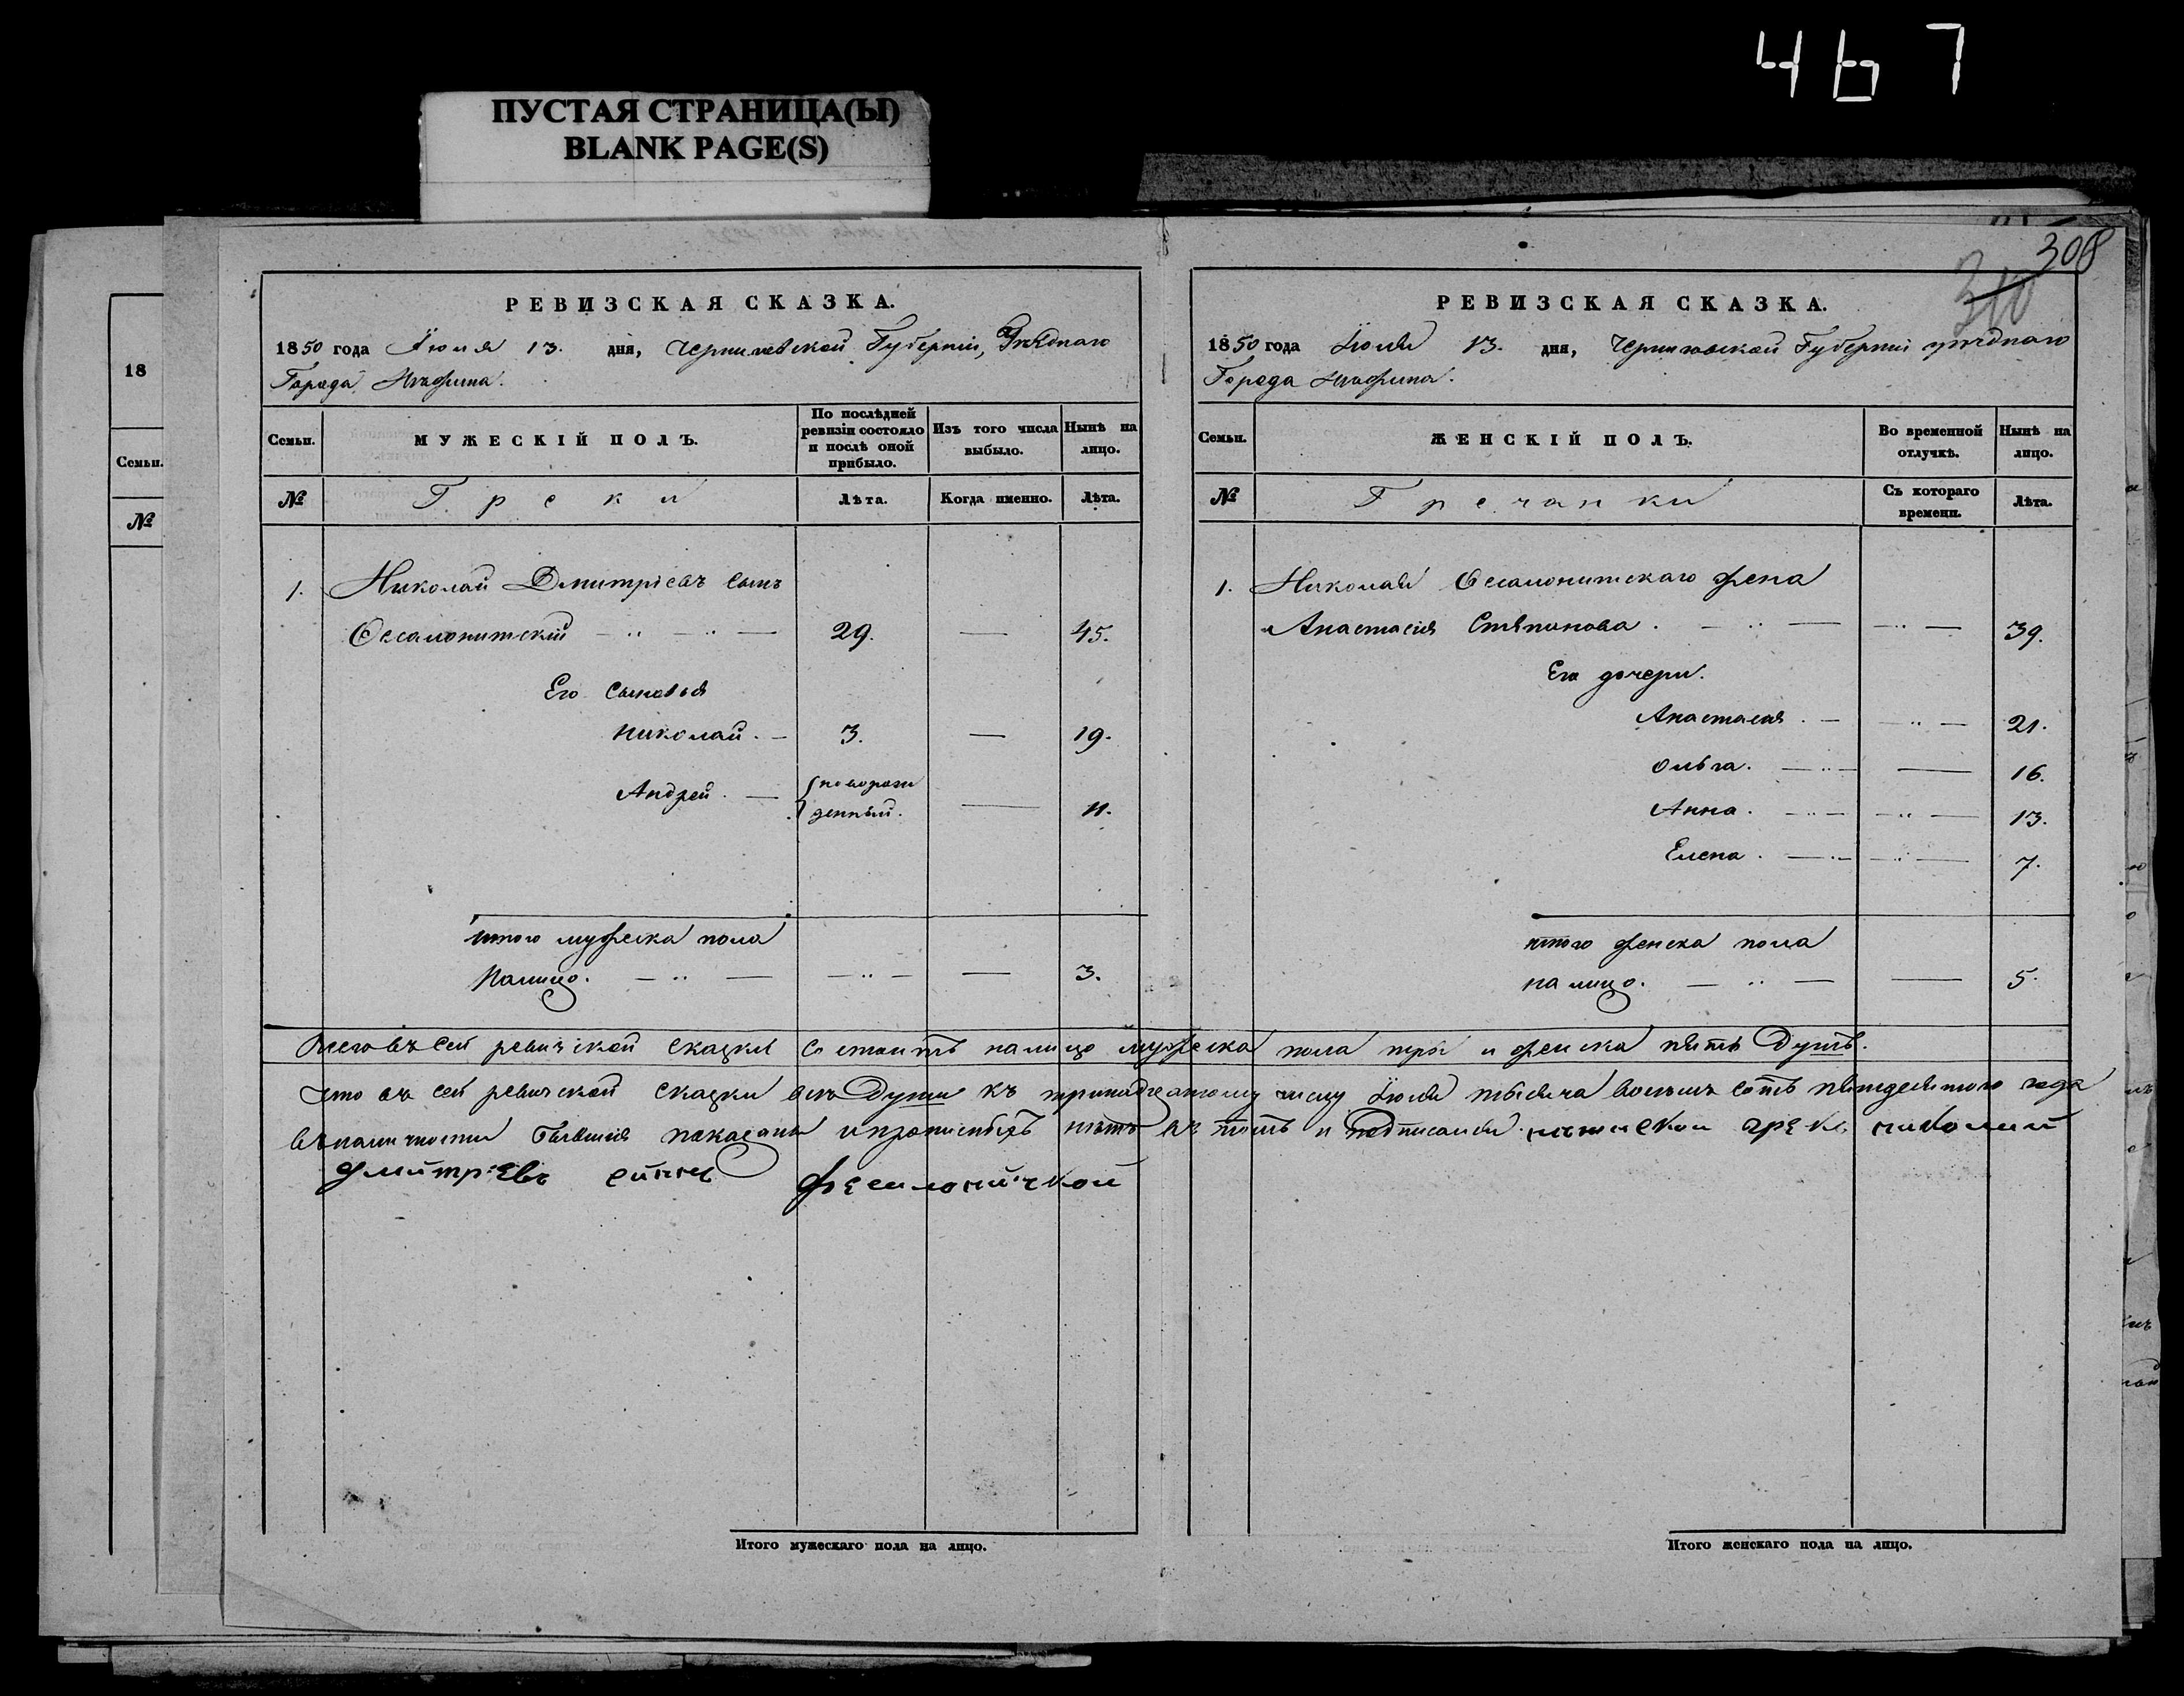 467
ПУСТАЯ СТРАНИЦА(Ы)
BLANK PAGE(S)
308
310
18
Семьи.
№
РЕВИЗСКАЯ СКАЗКА.
1850 года Июля 13. дня, Черниговской Губерніи, Уѣзднаго
Города Нѣжина.
Семьи.
МУЖЕСКІЙ ПОЛЪ.
По послѣдней ревизіи состояло и послѣ оной прибыло.
Изъ того числа выбыло.
Нынѣ на лицо.
№
Греки
Лѣта.
Когда именно.
Лѣта.
1. Николай Дмитріевъ сынъ
Ѳессалонитскій 29. — 45.
Его сыновья
Николай. — 3. — 19.
Андрей. — новорож
денный. — 11.
Итого мужеска пола
налицо. — 3.
РЕВИЗСКАЯ СКАЗКА.
1850 года Іюля 13. дня, Черниговской Губерніи уѣзднаго
Города Нѣжина.
Семьи.
ЖЕНСКІЙ ПОЛЪ.
Во временной отлучкѣ.
Нынѣ на лицо.
№
Гречанки
Съ котораго времени.
Лѣта.
1. Николая Ѳесалонитскаго жена
Анастасия Стяпанова. — 39.
Его дочери.
Анастасия. — 21.
Ольга. — 16.
Анна. — 13.
Елена. — 7.
итого женска пола
на лицо. — 5.
Всего въ сей ревизской сказки состоитъ налицо мужеска пола три и женска пять Душъ.
Что въ сей ревизской сказки всѣ Души къ тринадцатому числу Іюля тысяча восемъ сотъ пятидесятого года
въ наличности бывшия показаны и прописныхъ нѣтъ въ томъ и подписался нѣжинской грекъ николай
дмитріевъ сынъ фесалоничкой
Итого мужескаго пола на лицо.
Итого женскаго пола на лицо.